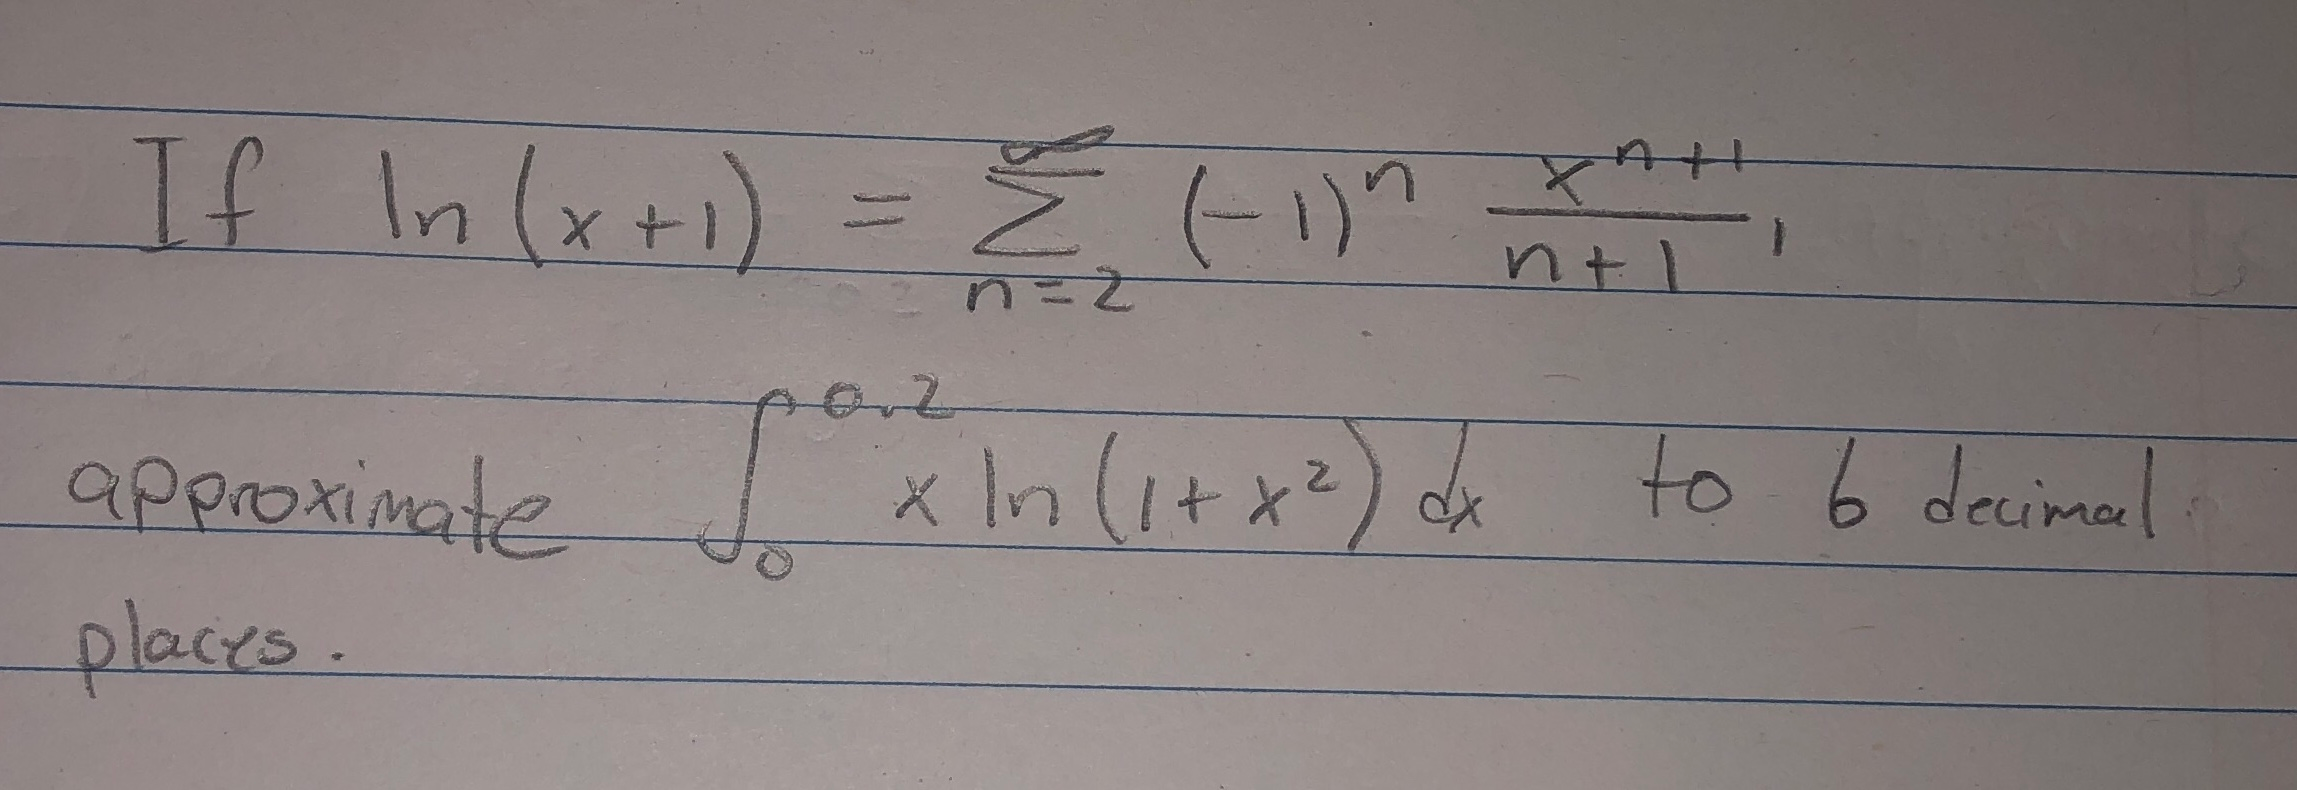 If ln(x+1) = ∑_{n=2}^{∞} (-1)^n \frac{x^{n+1}}{n+1},
approximate ∫_0^{0.2} x ln(1+x²) dx to 6 decimal
places.